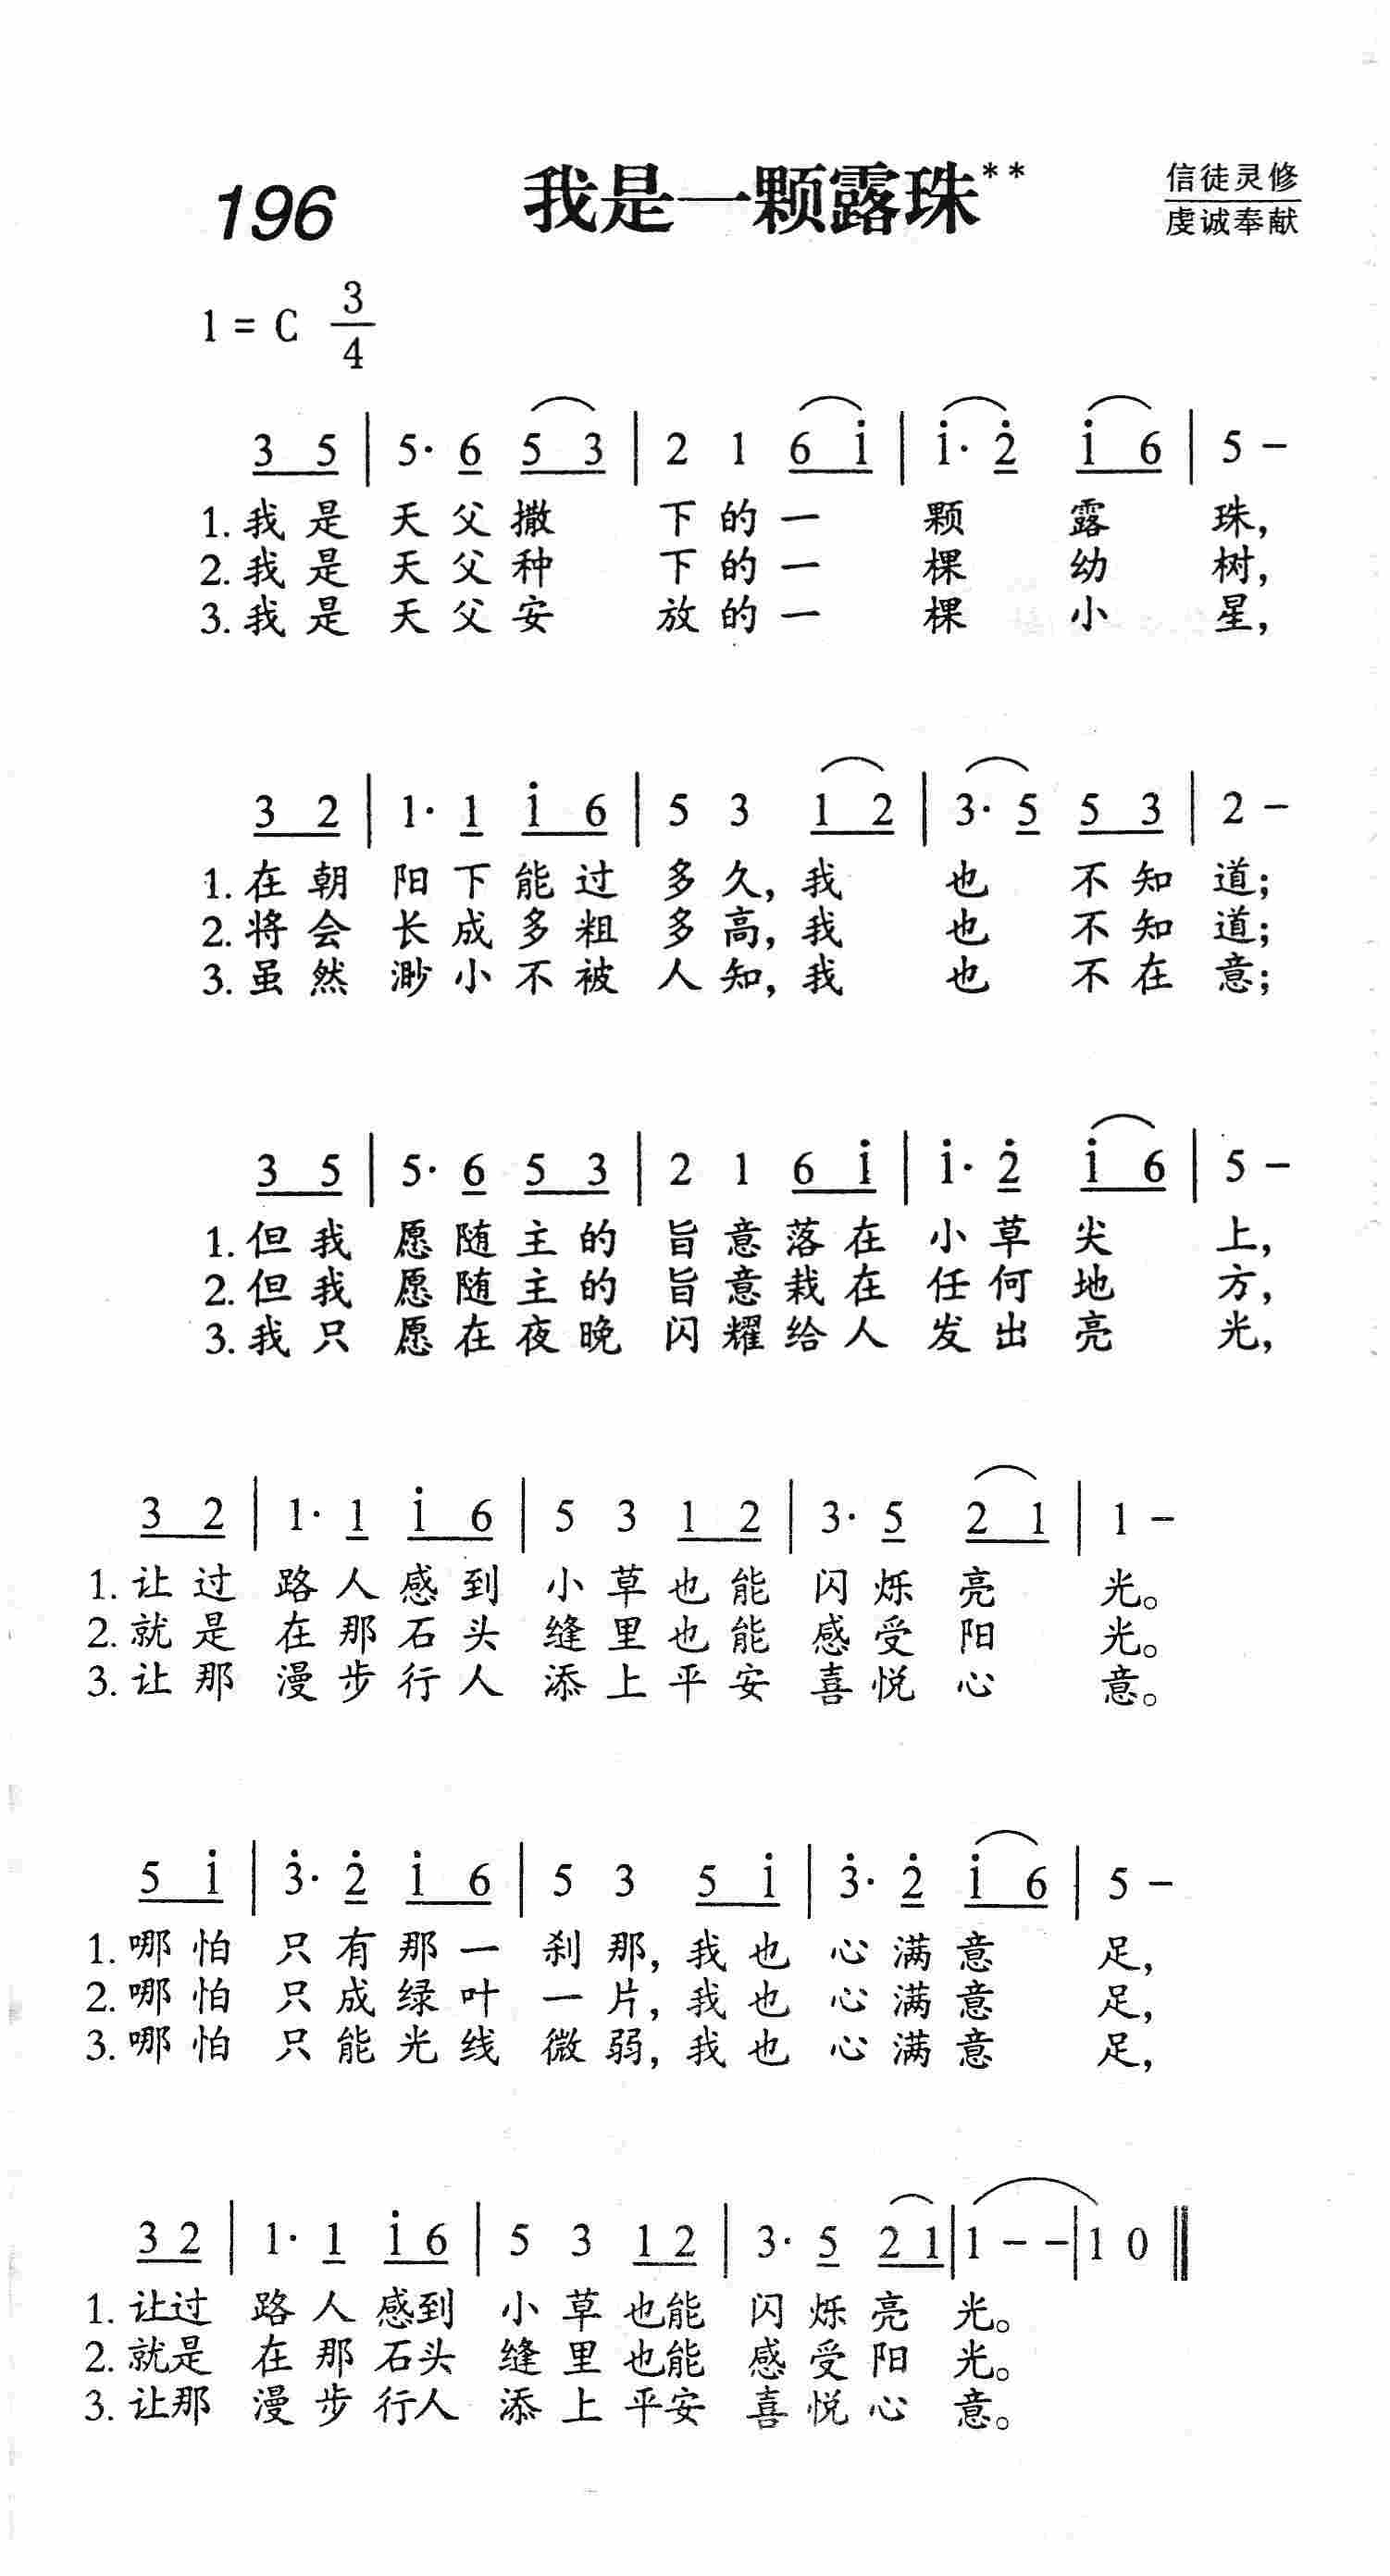 196 我是一颗露珠** 信徒灵修
虔诚奉献
1 = C 3/4
3 5 | 5· 6 5 3 | 2 1 6 i | i· 2̇ i 6 | 5 –
1. 我是 天父撒 下的一 颗 露 珠,
2. 我是 天父种 下的一 棵 幼 树,
3. 我是 天父安 放的一 棵 小 星,
3 2 | 1· 1 i 6 | 5 3 1 2 | 3· 5 5 3 | 2 –
1. 在朝 阳下能过 多久, 我 也 不知 道;
2. 将会 长成多粗 多高, 我 也 不知 道;
3. 虽然 渺小不被 人知, 我 也 不在 意;
3 5 | 5· 6 5 3 | 2 1 6 i | i· 2̇ i 6 | 5 –
1. 但我 愿随主的 旨意落在 小草尖 上,
2. 但我 愿随主的 旨意栽在 任何地 方,
3. 我只 愿在夜晚 闪耀给人 发出亮 光,
3 2 | 1· 1 i 6 | 5 3 1 2 | 3· 5 2 1 | 1 –
1. 让过 路人感到 小草也能 闪烁亮 光。
2. 就是 在那石头 缝里也能 感受阳 光。
3. 让那 漫步行人 添上平安 喜悦心 意。
5 i | 3̇· 2̇ i 6 | 5 3 5 i | 3̇· 2̇ i 6 | 5 –
1. 哪怕 只有那一 刹那, 我也 心满意 足,
2. 哪怕 只成绿叶 一片, 我也 心满意 足,
3. 哪怕 只能光线 微弱, 我也 心满意 足,
3 2 | 1· 1 i 6 | 5 3 1 2 | 3· 5 2 1 | 1 – – | 1 0 ‖
1. 让过 路人感到 小草也能 闪烁亮 光。
2. 就是 在那石头 缝里也能 感受阳 光。
3. 让那 漫步行人 添上平安 喜悦心 意。